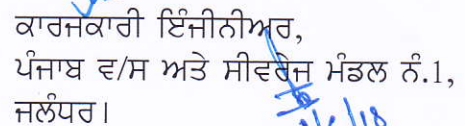 ਕਾਰਜਕਾਰੀ ਇੰਜੀਨੀਅਰ,
ਪੰਜਾਬ ਵ/ਸ ਅਤੇ ਸੀਵਰੇਜ ਮੰਡਲ ਨੰ.1,
ਜਲੰਧਰ।